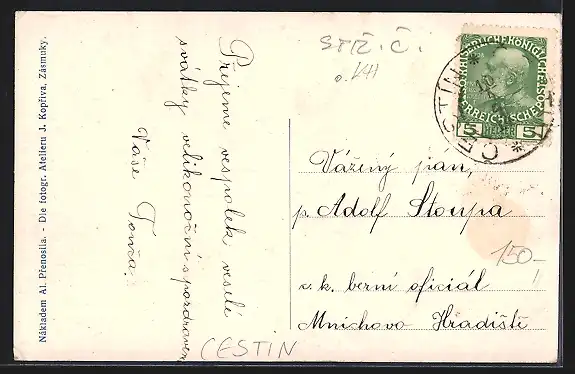 Nákladem Al. Přenosila. - Dle fotogr. Atelieru J. Kopřiva, Zásmuky.
Přejeme vespolek veselé
svátky velikonoční s pozdravem
Vaše Tonča.
STŘ. Č.
KAISERLICHE KÖNIGLICHE
ÖSTERREICHISCHE POST
5 HELLER 5
ČESTÍN
Vážený pan,
p. Adolf Stoupa
c. k. berní oficiál
Mnichovo Hradiště
150-
ČESTIN